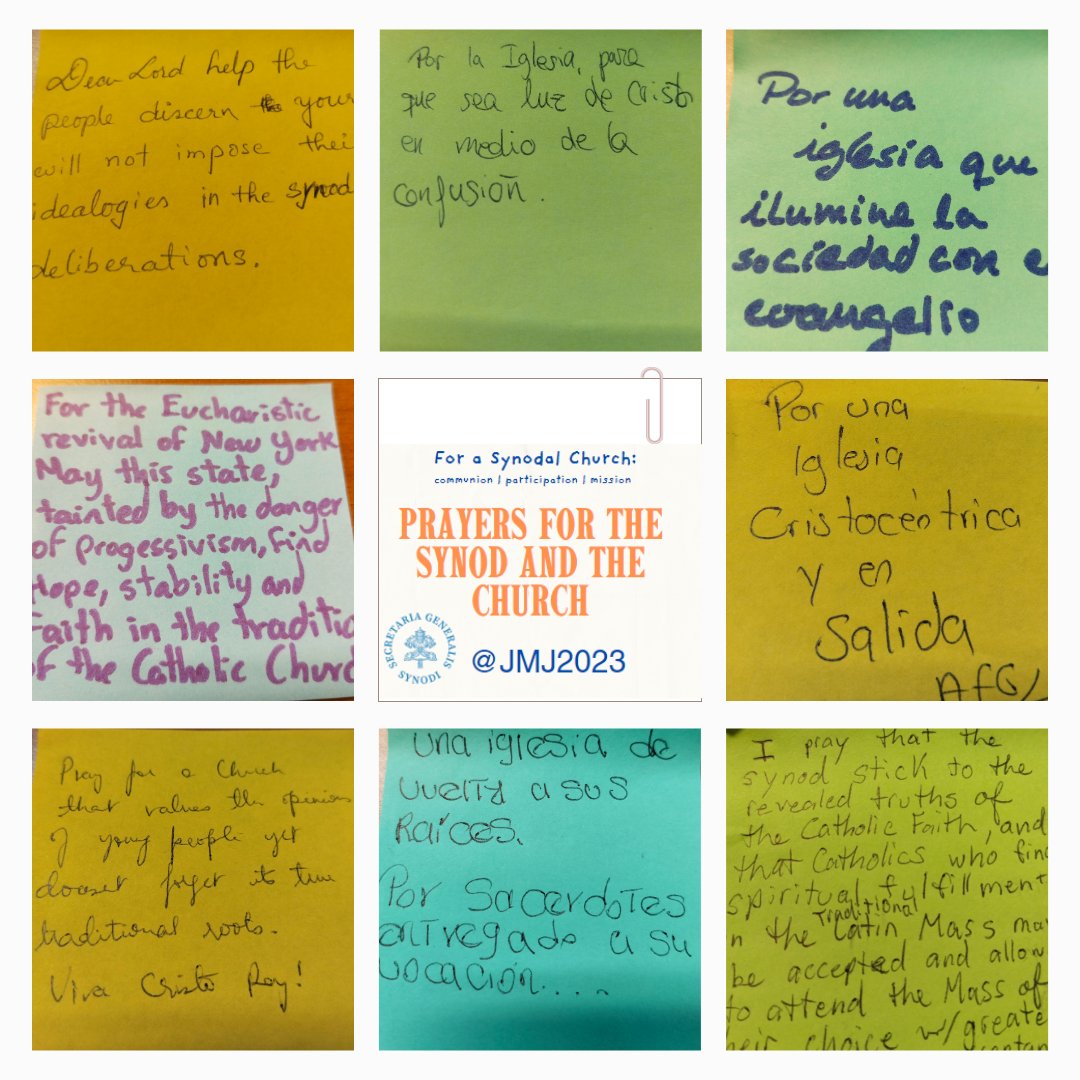 Dear Lord help the
people discern your
will not impose thei
idealogies in the synod
deliberations.
Por la Iglesia, para
que sea luz de Cristo
en medio de la
confusión.
Por una
iglesia que
ilumine la
sociedad con e
evangelio
For the Eucharistic
revival of New York
May this state,
tainted by the danger
of progessivism, find
Hope, stability and
Faith in the traditio
of the Catholic Churc
For a Synodal Church:
communion | participation | mission
PRAYERS FOR THE
SYNOD AND THE
CHURCH
SECRETARIA GENERALIS
SYNODI
@JMJ2023
Por una
Iglesia
Cristocéntrica
y en
Salida
AfG
Pray for a Church
that values the opinions
of young people yet
doesnt forget its true
traditional roots.
Viva Cristo Rey!
Una iglesia de
vuelta a sus
Raíces.
Por Sacerdotes
entregado a su
vocación....
I pray that the
synod stick to the
revealed truths of
the Catholic Faith, and
that Catholics who find
spiritual fulfillment
n the Traditional Latin Mass may
be accepted and allow
to attend the Mass of
their choice w/greate